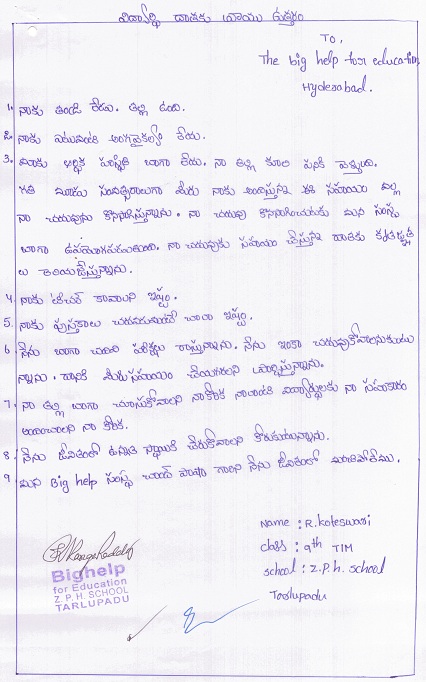 విద్యార్థి దాతకు వ్రాయు ఉత్తరం
To,
The big help for education,
Hyderabad.
1. నాకు తండ్రి లేడు. తల్లి ఉంది.
2. నాకు ఎటువంటి అంగవైకల్యం లేదు.
3. మాకు ఆర్థిక పరిస్థితి బాగా లేదు. నా తల్లి కూలి పనికి వెళ్ళుంది.
గత మూడు సంవత్సరాలుగా మీరు నాకు అందిస్తున్న ఈ సహాయం వల్ల
నా చదువును కొనసాగిస్తున్నాను. నా చదువు కొనసాగించుటకు మన సంస్థ
బాగా ఉపయోగపడుతుంది. నా చదువుకు సహాయం చేస్తున్న దాతకు కృతజ్ఞత
లు తెలియజేస్తున్నాను.
4. నాకు టీచర్ కావాలని ఇష్టం.
5. నాకు పుస్తకాలు చదవడమంటే చాలా ఇష్టం.
6 నేను బాగా చదివి పరీక్షలు రాస్తున్నాను. నేను ఇంకా చదువుకోవాలనుకుంటు
న్నాను. దానికి మీరు సహాయం చేయగలరని ప్రార్థిస్తున్నాను.
7. నా తల్లి బాగా చూసుకోవాలని నా కోరిక నాలాంటి విద్యార్థులకు నా సహకారం
అందించాలని నా కోరిక.
8. నేను జీవితంలో ఉన్నత స్థాయికి చేరుకోవాలని కోరుకుంటున్నాను.
9 మన Big help సంస్థ చాంద్ పాషా గారిని నేను జీవితంలో మరిచిపోలేము.
Name : R. koteswari
class : 9th TIM
school : Z.P.h. school
Tarlupadu
Bighelp
for Education
Z.P.H. SCHOOL
TARLUPADU